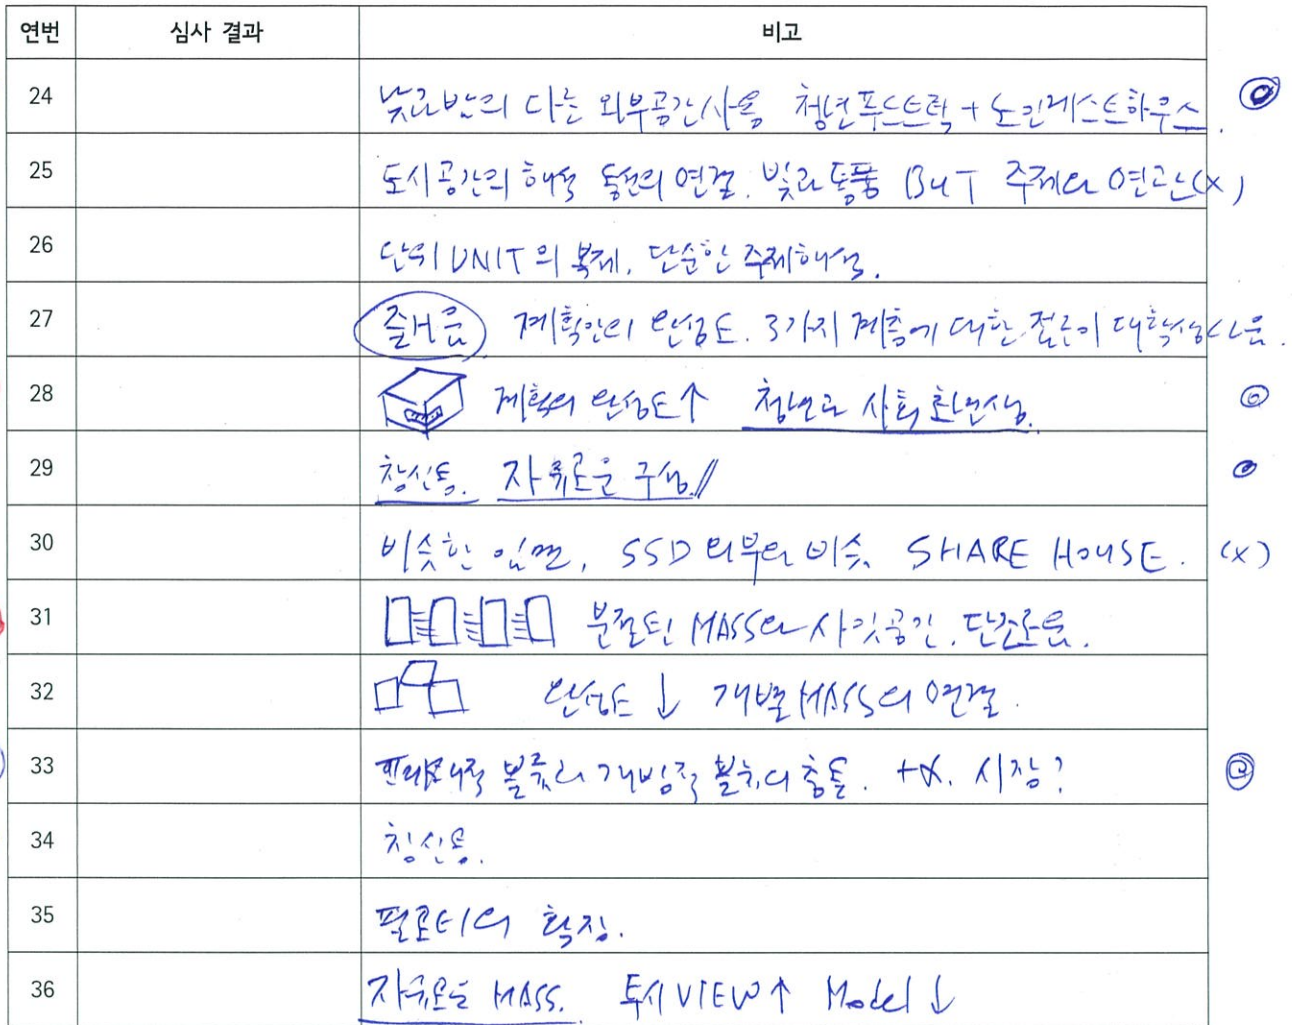 연번 심사 결과 비고
24 낮과밤의 다른 외부공간사용 청년푸드트럭 + 노인게스트하우스.
25 도시공간의 해석 동선의 연결. 빛과 통풍 BUT 주제와 연관(x)
26 단위 UNIT의 복제. 단순한 주제해석.
27 즐거움 계획안의 완성도. 3가지 계층에 대한 접근이 대학생다운.
28 계획의 완성도↑ 청년과 사회초년생.
29 창신동. 자유로운 구성.//
30 비슷한 입면, SSD 외부와 비슷. SHARE HOUSE. (x)
31 분절된 MASS와 사잇공간. 단조로움.
32 완성도 ↓ 개별 MASS의 연결.
33 볼륨과 개방적 충돌. +α. 시장?
34 창신동.
35 필로티의 확장.
36 자유로운 MASS. 투시 VIEW↑ Model ↓